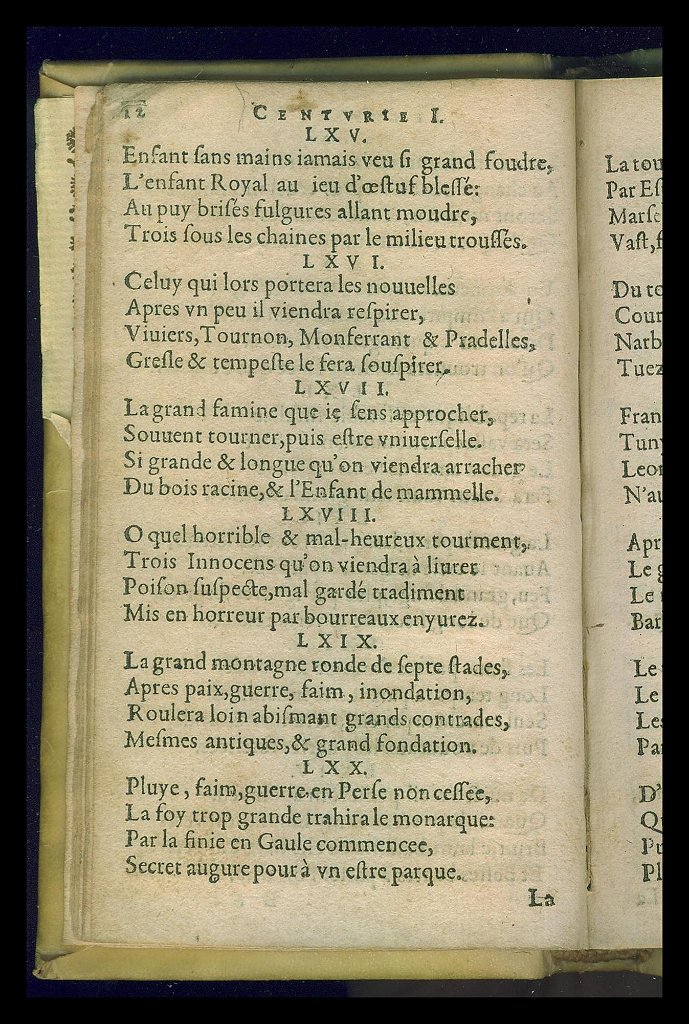 12
CENTVRIE I.
LXV.
Enfant ſans mains iamais veu ſi grand foudre,
L'enfant Royal au ieu d'œſtuf bleſſé:
Au puy briſés fulgures allant moudre,
Trois ſous les chaines par le milieu trouſſés.
LXVI.
Celuy qui lors portera les nouuelles
Apres vn peu il viendra reſpirer,
Viuiers,Tournon, Monferrant & Pradelles,
Greſle & tempeſte le fera ſouſpirer.
LXVII.
La grand famine que ie ſens approcher,
Souuent tourner,puis eſtre vniuerſelle.
Si grande & longue qu'on viendra arracher
Du bois racine,& l'Enfant de mammelle.
LXVIII.
O quel horrible & mal-heureux tourment,
Trois Innocens qu'on viendra à liurer
Poiſon ſuſpecte,mal gardé tradiment
Mis en horreur par bourreaux enyurez.
LXIX.
La grand montagne ronde de ſepte ſtades,
Apres paix,guerre, faim, inondation,
Roulera loin abiſmant grands contrades,
Meſmes antiques,& grand fondation.
LXX.
Pluye, faim,guerre en Perſe non ceſſee,
La foy trop grande trahira le monarque:
Par la finie en Gaule commencee,
Secret augure pour à vn eſtre parque.
La
La tou
Par Eſ
Marſe
Vaſt,ſ
Du to
Cour
Narb
Tuez
Fran
Tuny
Leon
N'au
Apr
Le g
Le
Bar
Le
Le
Les
Pa
D'
Q
Pl